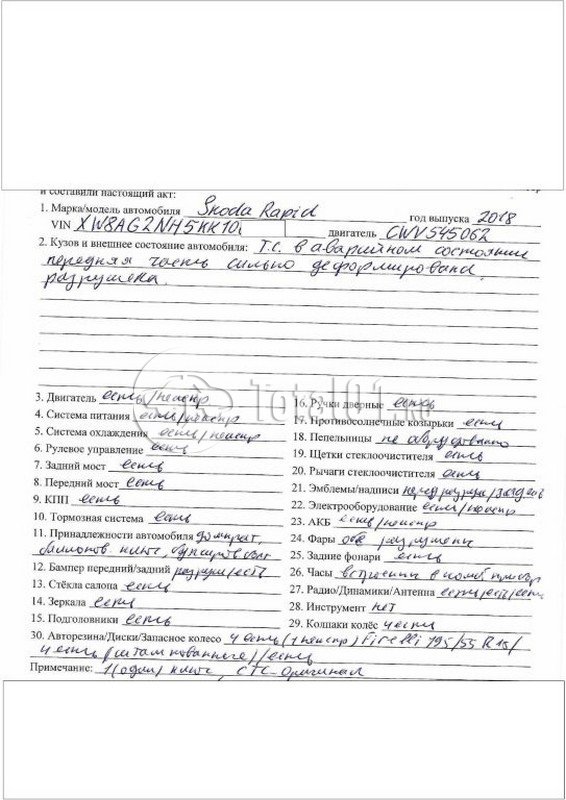 и составили настоящий акт:
1. Марка/модель автомобиля Skoda Rapid год выпуска 2018
VIN XW8AG2NH5KK10 двигатель CWV545062
2. Кузов и внешнее состояние автомобиля: Т.С. в аварийном состоянии
передняя часть сильно деформирована,
разрушена.
3. Двигатель есть/неиспр
16. Ручки дверные есть
4. Система питания есть/неиспр
17. Противосолнечные козырьки есть
5. Система охлаждения есть/неиспр
18. Пепельницы не оборудовано
6. Рулевое управление есть
19. Щетки стеклоочистителя есть
7. Задний мост есть
20. Рычаги стеклоочистителя есть
8. Передний мост есть
21. Эмблемы/надписи
9. КПП есть
22. Электрооборудование есть/неиспр
10. Тормозная система есть
23. АКБ есть/неиспр
11. Принадлежности автомобиля домкрат,
24. Фары обе разрушены
ключ,
25. Задние фонари есть
12. Бампер передний/задний разруш/есть
26. Часы встроены в комб. прибор
13. Стёкла салона есть
27. Радио/Динамики/Антенна есть/есть/есть
14. Зеркала есть
28. Инструмент нет
15. Подголовники есть
29. Колпаки колёс 4 есть
30. Авторезина/Диски/Запасное колесо 4 есть (1 неиспр) Pirelli 195/55 R15/
4 есть (штампованные)/есть
Примечание: 1 (один) ключ, СТС-оригинал
Total01.ru